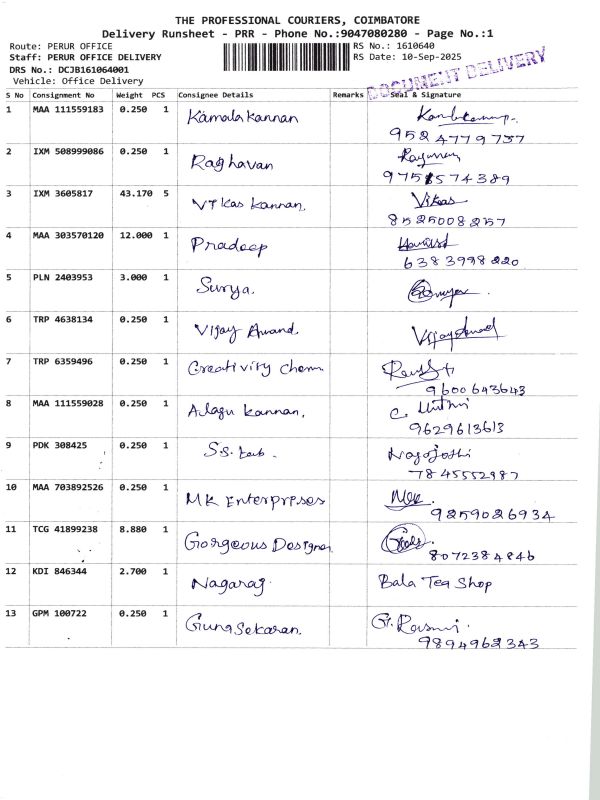 THE PROFESSIONAL COURIERS, COIMBATORE
Delivery Runsheet - PRR - Phone No.:9047080280 - Page No.:1
Route: PERUR OFFICE
Staff: PERUR OFFICE DELIVERY
DRS No.: DCJB161064001
Vehicle: Office Delivery
RS No.: 1610640
RS Date: 10-Sep-2025
DOCUMENT DELIVERY
S No Consignment No Weight PCS Consignee Details Remarks Seal & Signature
1 MAA 111559183 0.250 1 Kamala kannan
9524779737
2 IXM 508999086 0.250 1 Raghavan
3 IXM 3605817 43.170 5 Vikas kannan. Vikas
8525008257
4 MAA 303570120 12.000 1 Pradeep
6383998220
5 PLN 2403953 3.000 1 Surya.
6 TRP 4638134 0.250 1 Vijay Anand. Vijay Anand
7 TRP 6359496 0.250 1 Creativity Chem
9600643643
8 MAA 111559028 0.250 1 Alagu kannan. C. Muthu
9629613613
9 PDK 308425 0.250 1 S.S. Nagajothi
7845552987
10 MAA 703892526 0.250 1 MK Enterprises
9259026934
11 TCG 41899238 8.880 1 Gorgeous Designer
8072384846
12 KDI 846344 2.700 1 Nagaraj Bala Tea Shop
13 GPM 100722 0.250 1 Gunasekaran. G.
9894962343